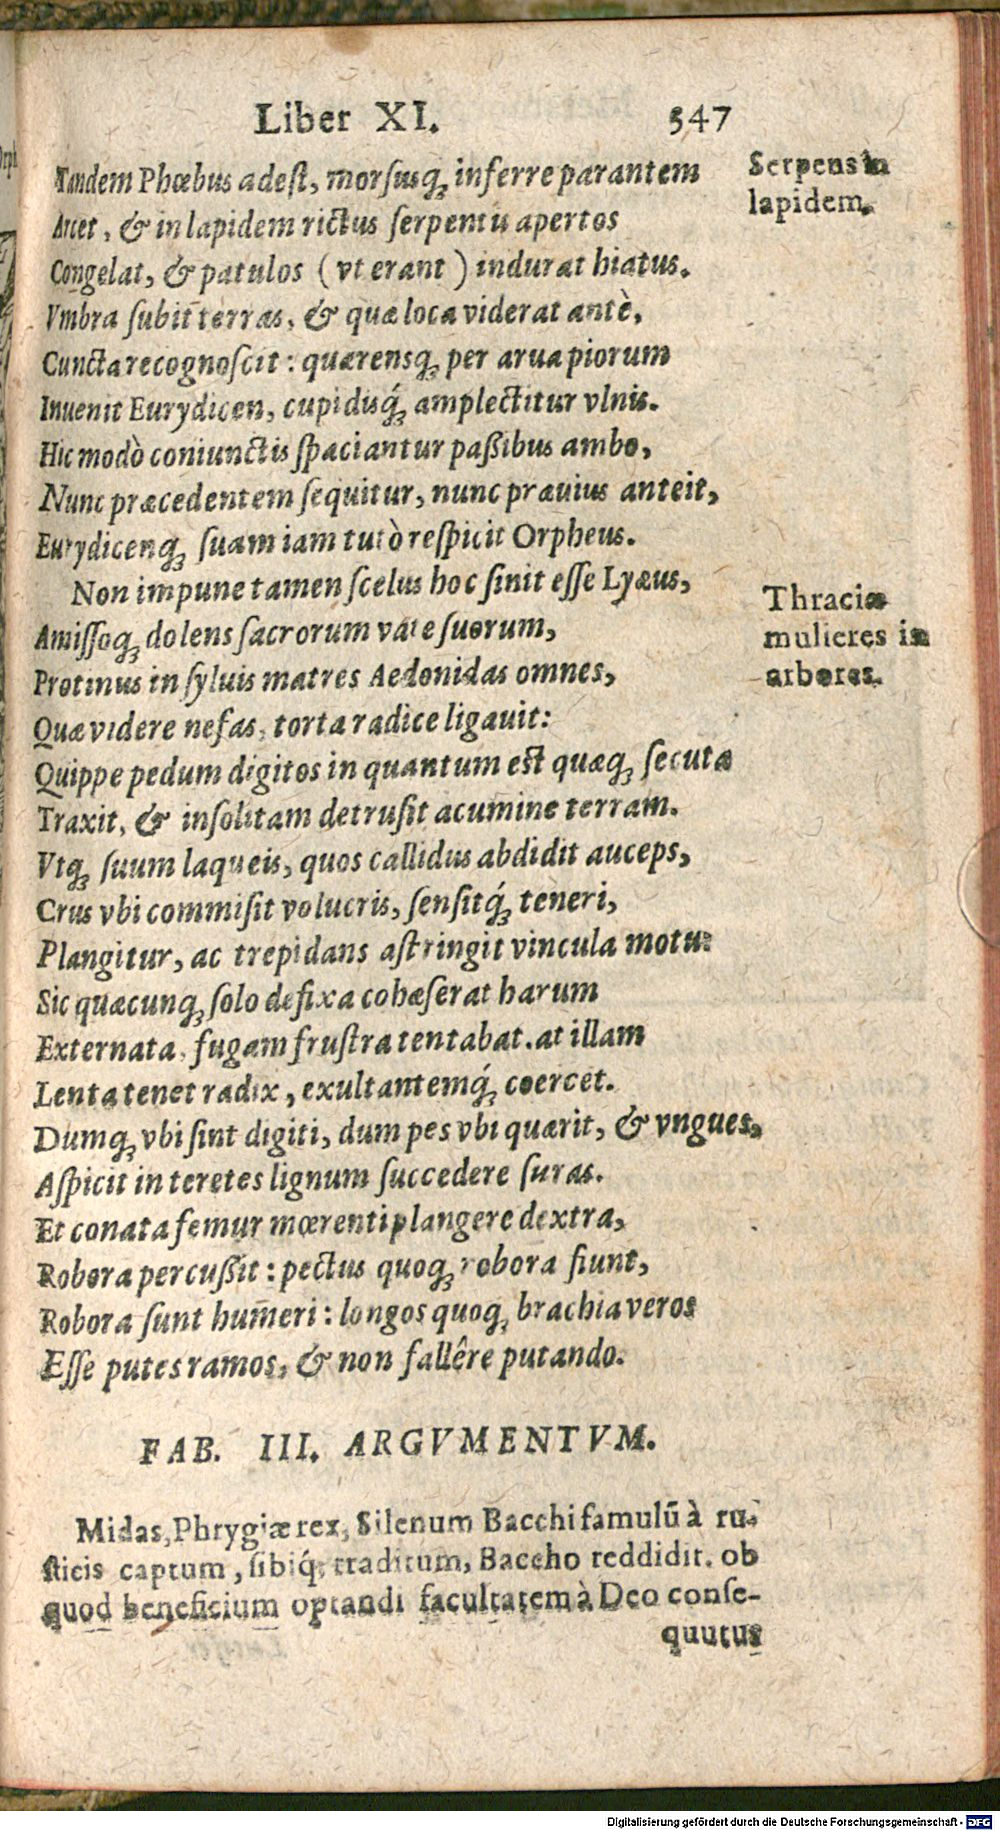 Liber XI. 547
Tandem Phœbus adeſt, morſusq́; inferre parantem
Arcet, & in lapidem rictus ſerpentis apertos
Congelat, & patulos (vt erant) indurat hiatus.
Serpens in
lapidem.
Vmbra ſubit terras, & quæ loca viderat antè,
Cuncta recognoſcit: quærensq; per arua piorum
Inuenit Eurydicen, cupidusq́; amplectitur vlnis.
Hic modò coniunctis ſpaciantur paßibus ambo,
Nunc præcedentem ſequitur, nunc præuius anteit,
Eurydicenq; ſuam iam tutò reſpicit Orpheus.
Non impune tamen ſcelus hoc ſinit eſſe Lyæus,
Amiſſoq; dolens ſacrorum vate ſuorum,
Protinus in ſyluis matres Aedonidas omnes,
Thraciæ
mulieres in
arbores.
Quæ videre nefas, torta radice ligauit:
Quippe pedum digitos in quantum est quæq; ſecuta
Traxit, & inſolitam detruſit acumine terram.
Vtq; ſuum laqueis, quos callidus abdidit auceps,
Crus vbi commiſit volucris, ſenſitq́; teneri,
Plangitur, ac trepidans aſtringit vincula motu:
Sic quæcunq; ſolo defixa cohæſerat harum
Externata, fugam fruſtra tentabat. at illam
Lenta tenet radix, exultantemq́; coercet.
Dumq; vbi ſint digiti, dum pes vbi quærit, & vngues,
Aſpicit in teretes lignum ſuccedere ſuras.
Et conata femur mœrenti plangere dextra,
Robora percußit: pectus quoq; robora fiunt,
Robora ſunt hum̄eri: longos quoq; brachia veros
Eſſe putes ramos, & non fallêre putando.
FAB. III. ARGVMENTVM.
Midas, Phrygiæ rex, Silenum Bacchi famulũ à ru-
ſticis captum, ſibiq́; traditum, Baccho reddidit. ob
quod beneficium optandi facultatem à Deo conſe-
quutus
Digitalisierung gefördert durch die Deutsche Forschungsgemeinschaft - DFG